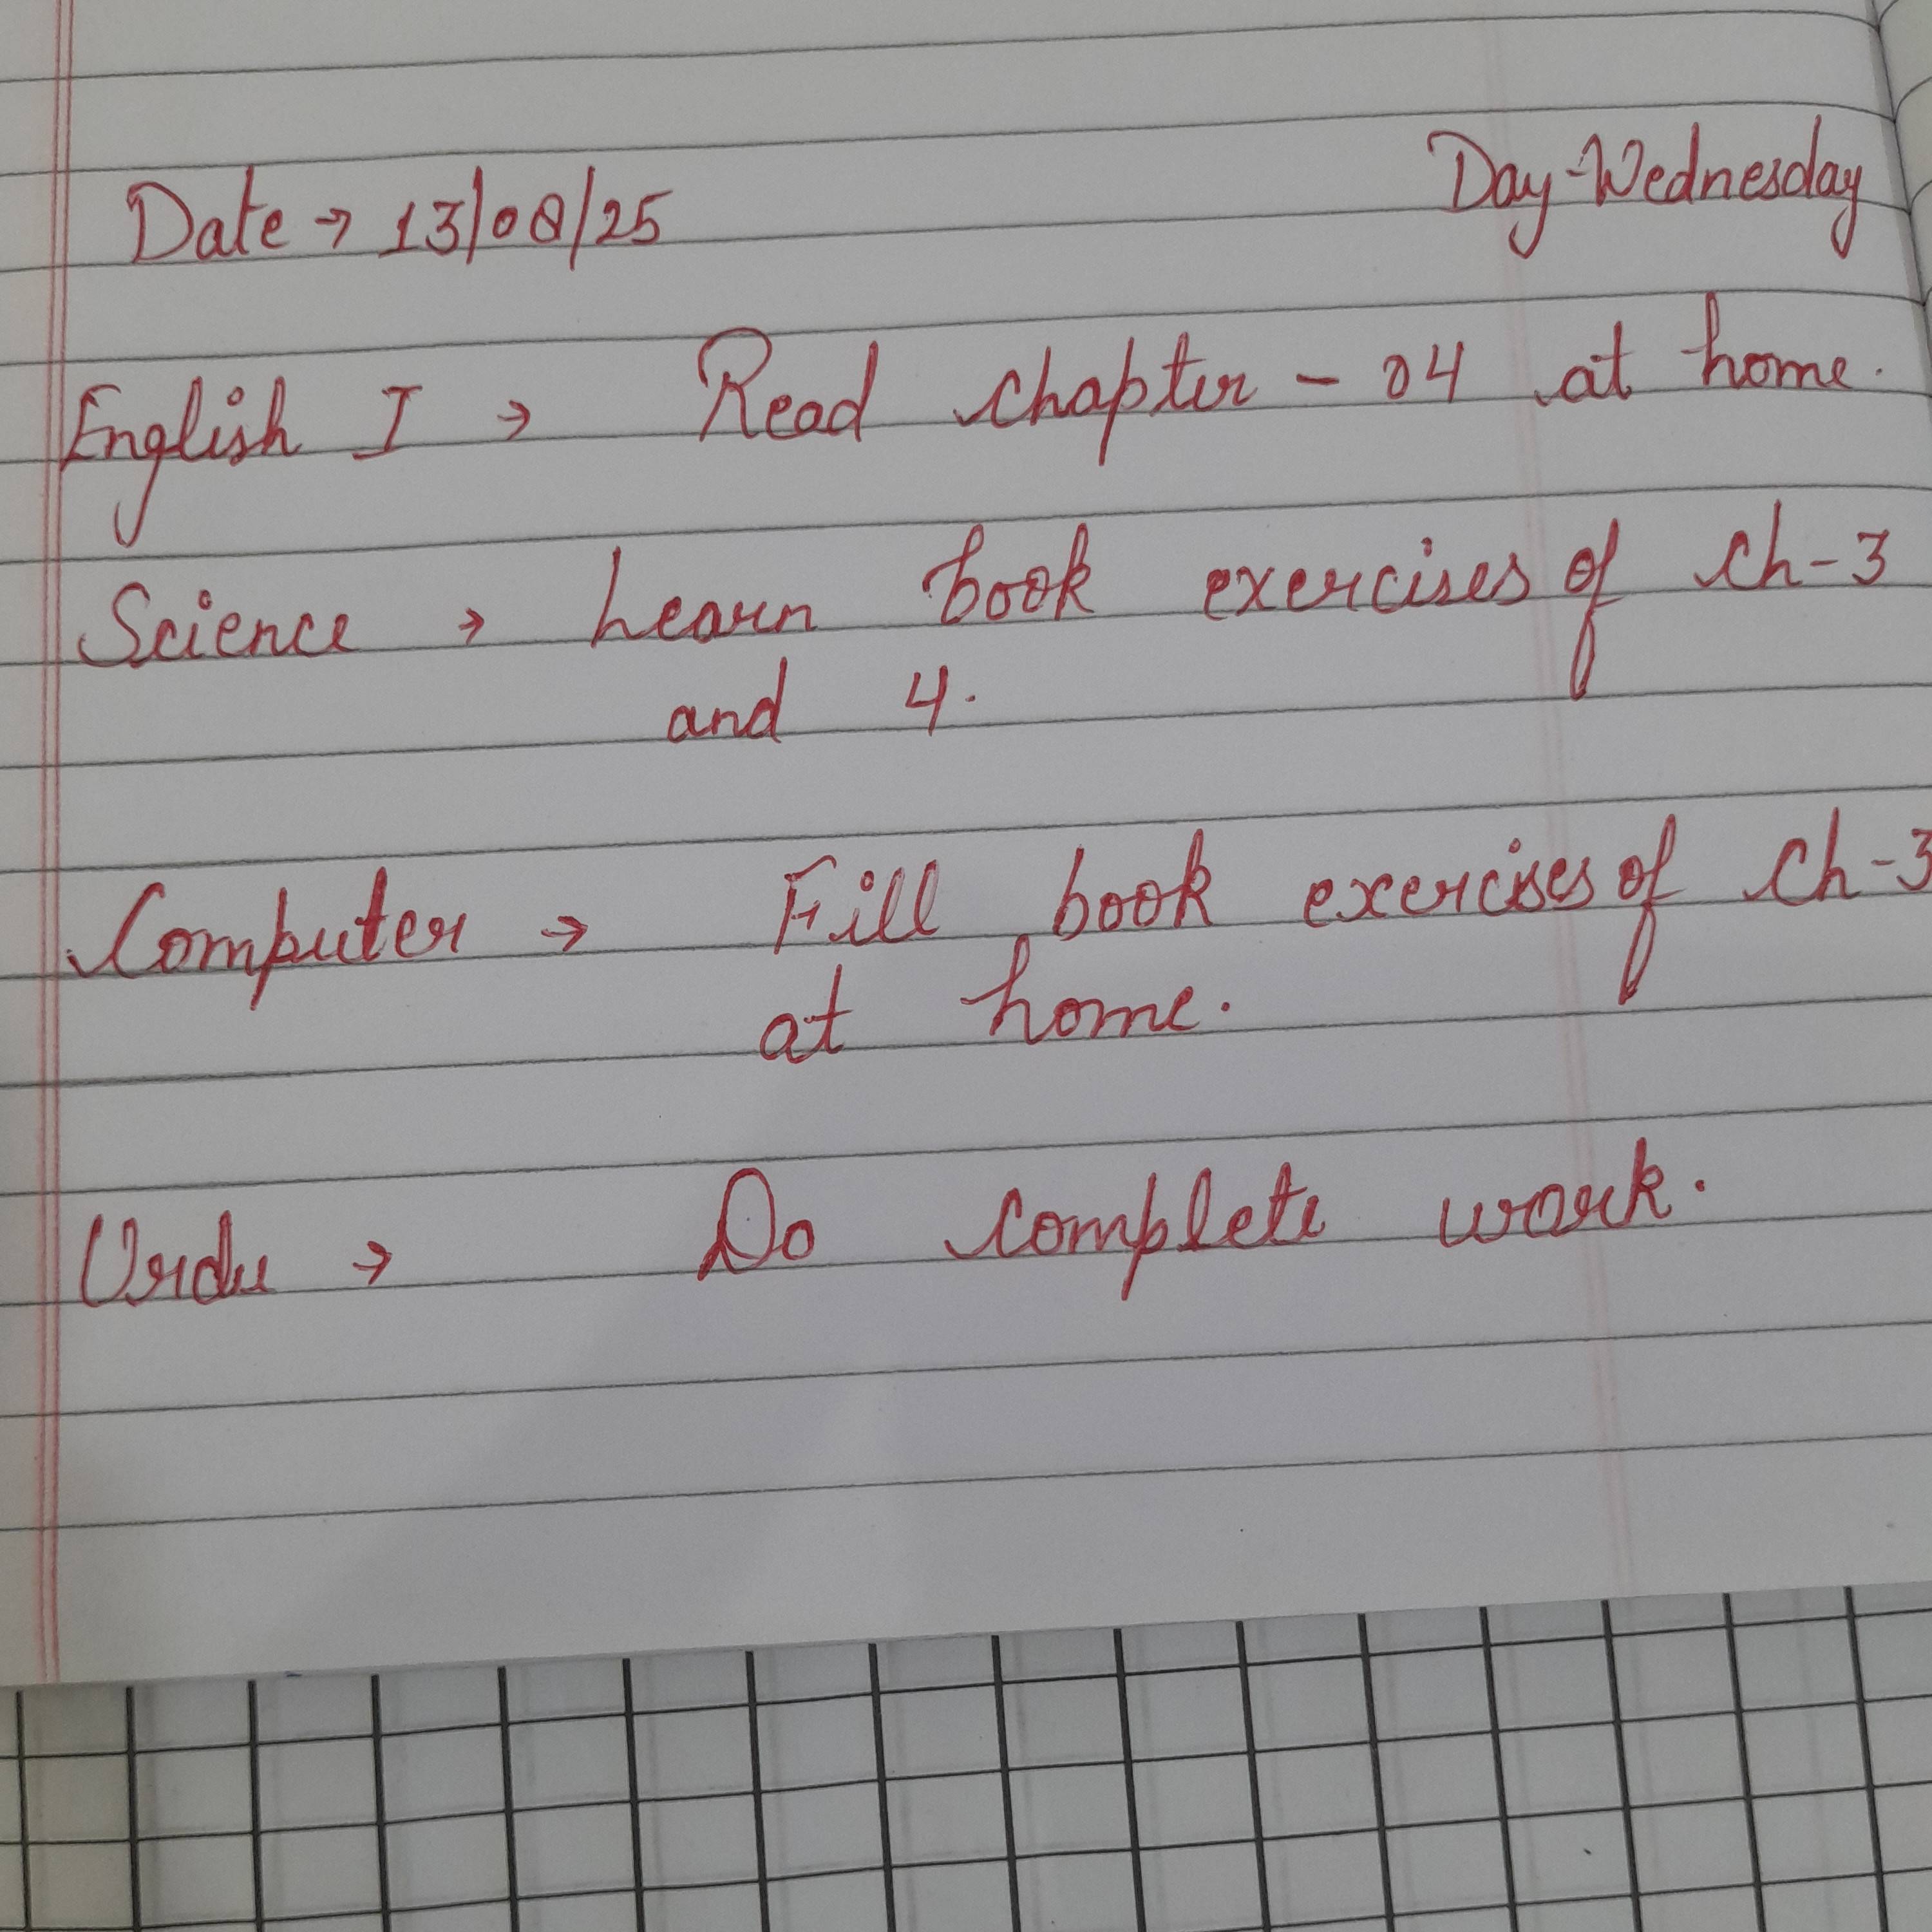 Date → 13/08/25 Day-Wednesday
English I → Read chapter - 04 at home.
Science → Learn book exercises of ch-3
and 4.
Computer → Fill book exercises of ch-3
at home.
Urdu → Do complete work.